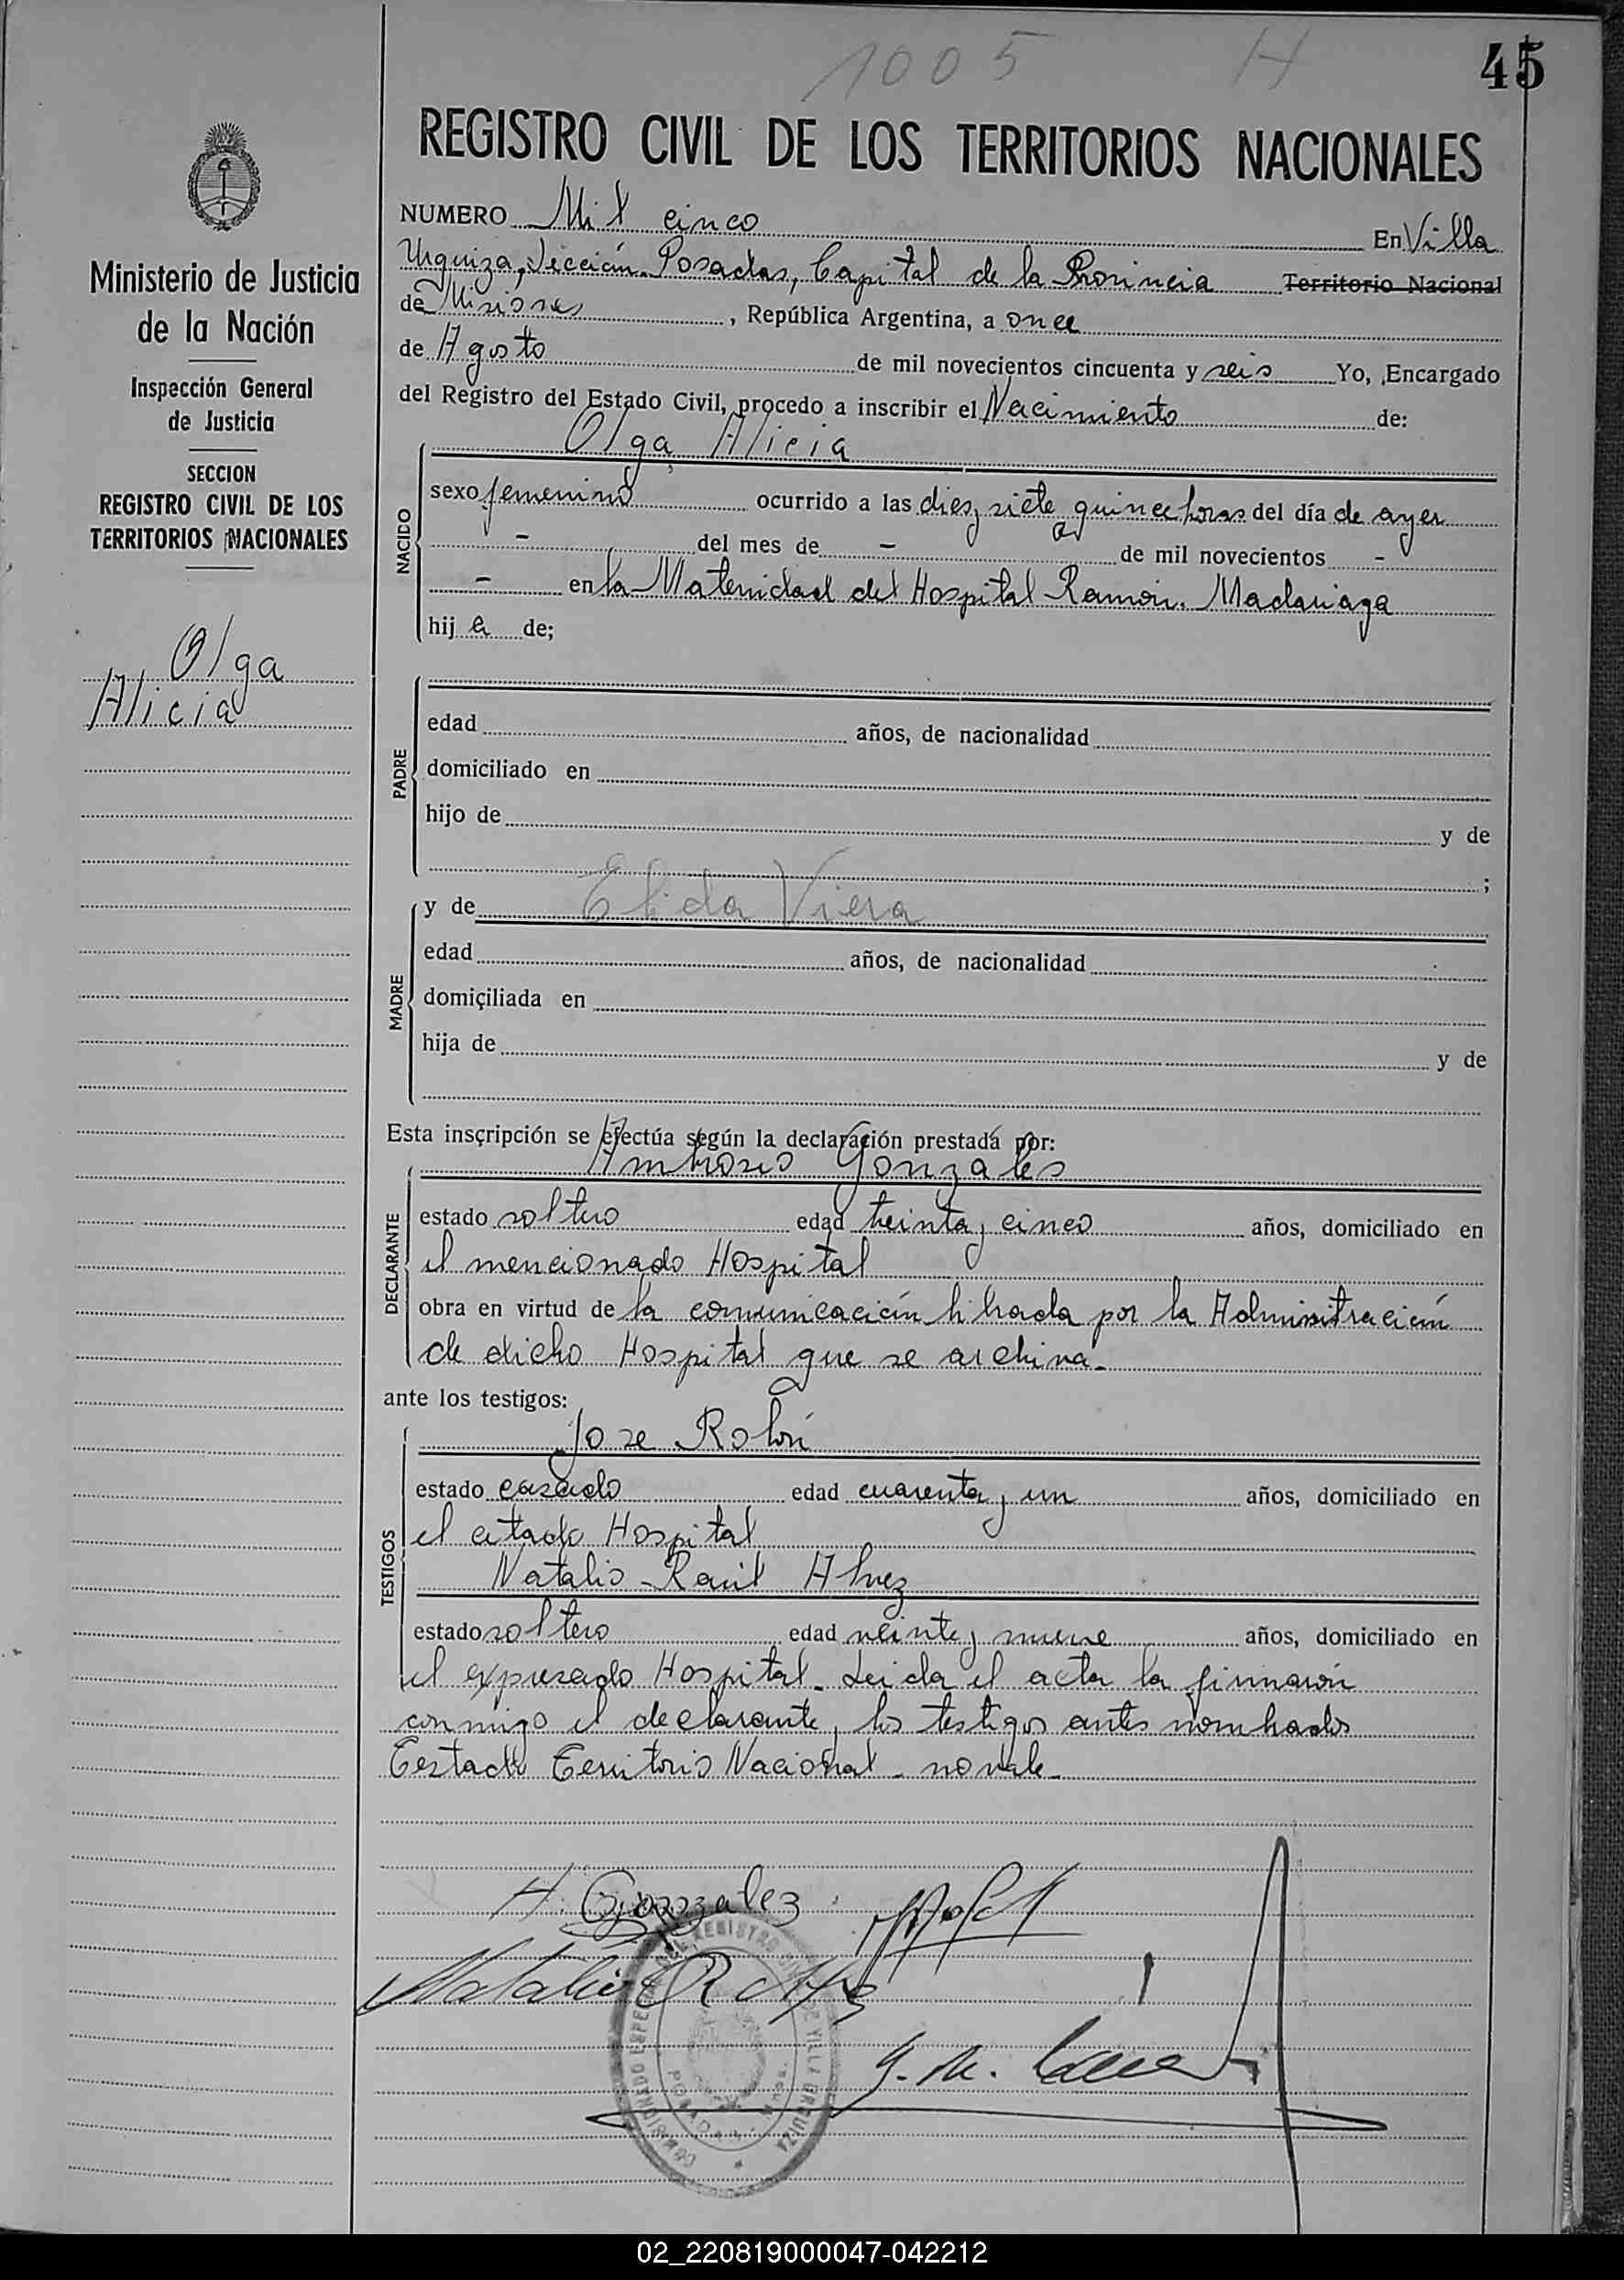 1005 H 45
REGISTRO CIVIL DE LOS TERRITORIOS NACIONALES
Ministerio de Justicia
de la Nación
Inspección General
de Justicia
SECCION
REGISTRO CIVIL DE LOS
TERRITORIOS NACIONALES
Olga
Alicia
NUMERO Mil cinco En Villa
Urquiza, Sección Posadas, Capital de la Provincia Territorio Nacional
de Misiones, República Argentina, a once
de Agosto de mil novecientos cincuenta y seis Yo, Encargado
del Registro del Estado Civil, procedo a inscribir el Nacimiento de:
Olga Alicia
NACIDO
sexo femenino ocurrido a las diez y siete y quince horas del día de ayer
- del mes de - de mil novecientos -
- en la Maternidad del Hospital Ramón Madariaga
hij a de;
PADRE
edad años, de nacionalidad
domiciliado en
hijo de y de
;
MADRE
y de Elida Viera
edad años, de nacionalidad
domiciliada en
hija de y de
Esta inscripción se efectúa según la declaración prestada por:
Ambrosio Gonzales
DECLARANTE
estado soltero edad treinta y cinco años, domiciliado en
el mencionado Hospital
obra en virtud de la comunicación librada por la Administración
de dicho Hospital que se archiva-
ante los testigos:
Jose Rolón
TESTIGOS
estado casado edad cuarenta y un años, domiciliado en
el citado Hospital
Natalio Raúl Alvez
estado soltero edad veinte y nueve años, domiciliado en
el expresado Hospital- Leida el acta la firmaron
conmigo el declarante y los testigos antes nombrados
Testado Territorio Nacional - no vale-
A. Gonzalez
Natalio R Alvez
COMISIONADO ESPECIAL DEL REGISTRO CIVIL DE VILLA URQUIZA
POSADAS
02_220819000047-042212